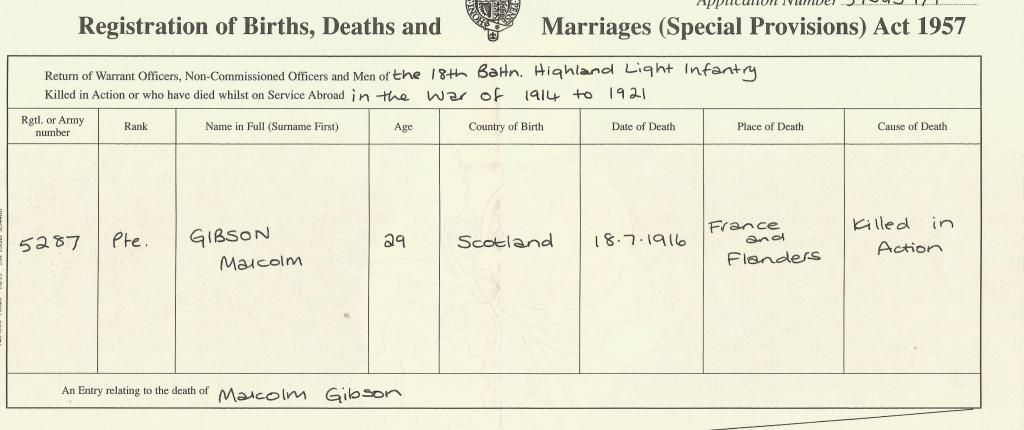 Application Number
Registration of Births, Deaths and Marriages (Special Provisions) Act 1957
Return of Warrant Officers, Non-Commissioned Officers and Men of the 18th Battn. Highland Light Infantry
Killed in Action or who have died whilst on Service Abroad in the War of 1914 to 1921
Rgtl. or Army number
Rank
Name in Full (Surname First)
Age
Country of Birth
Date of Death
Place of Death
Cause of Death
5287
Pte.
GIBSON
Malcolm
29
Scotland
18.7.1916
France
and
Flanders
Killed in
Action
An Entry relating to the death of Malcolm Gibson